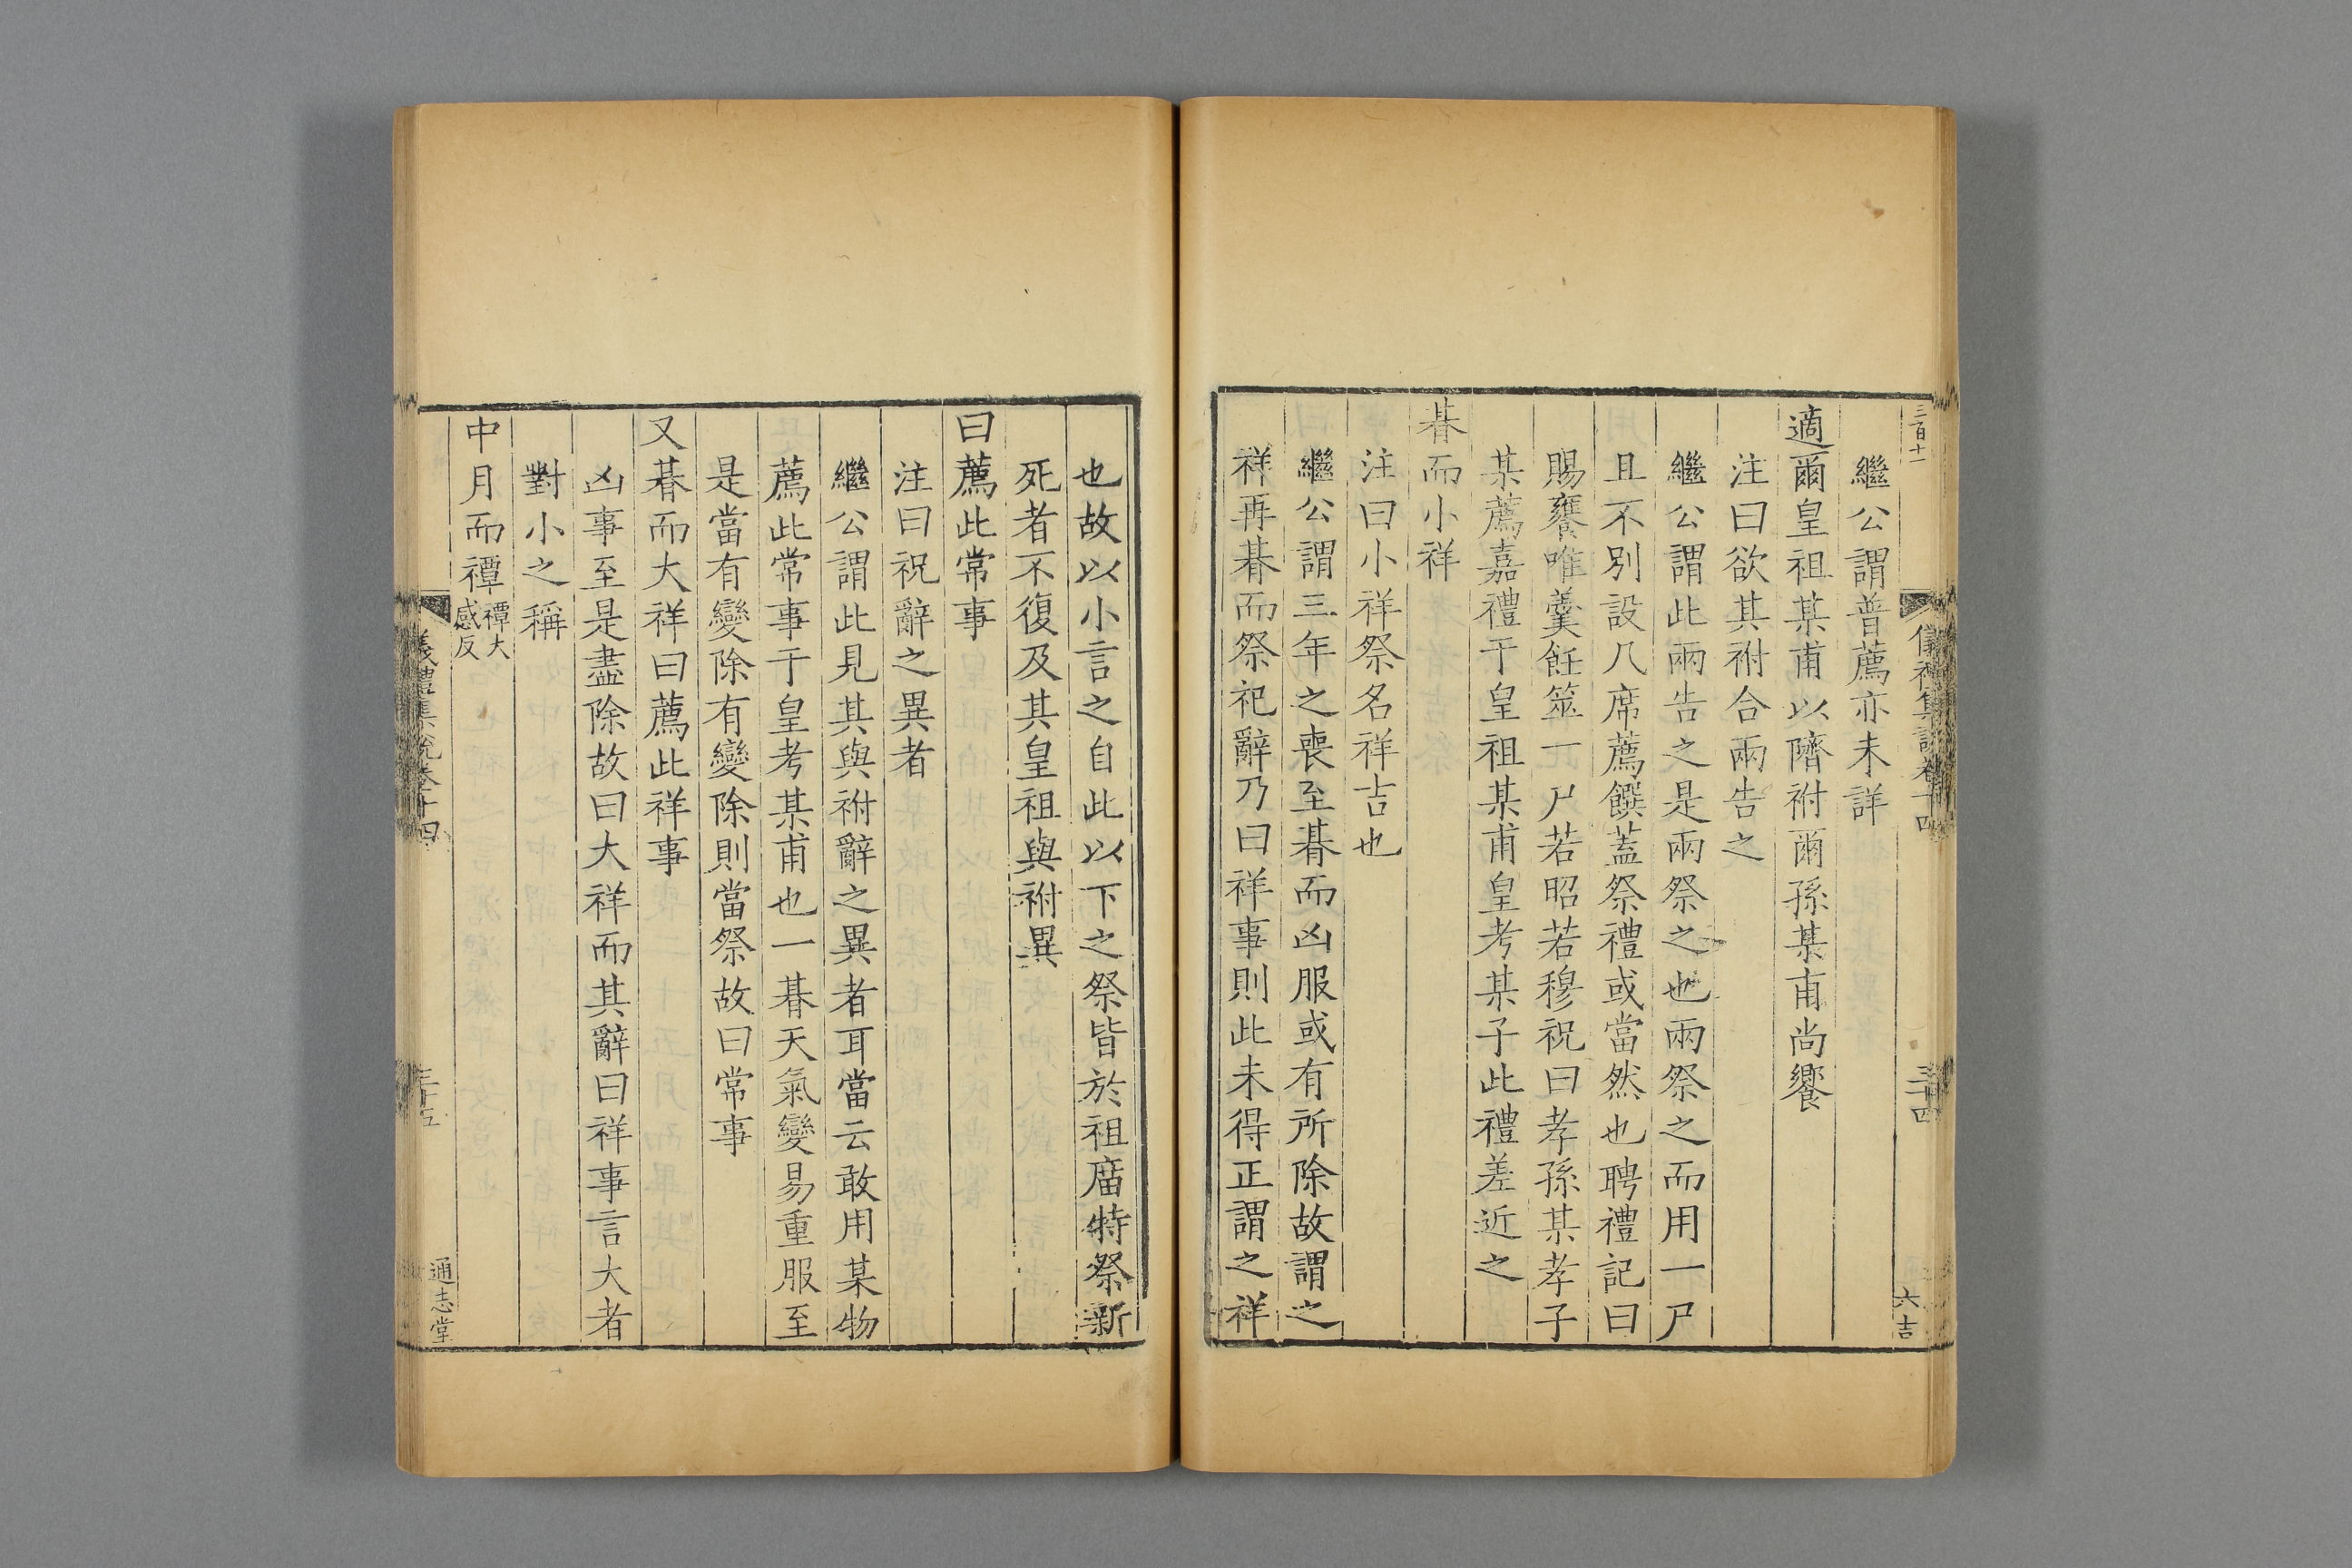 三百十一
儀禮集說卷十四
三十四
六吉
繼公謂普薦亦未詳
適爾皇祖某甫以隮祔爾孫某甫尚饗
注曰欲其祔合兩告之
繼公謂此兩告之是兩祭之也兩祭之而用一尸
且不別設几席薦饌蓋祭禮或當然也聘禮記曰
賜饔唯羹飪筮一尸若昭若穆祝曰孝孫某孝子
某薦嘉禮于皇祖某甫皇考某子此禮差近之
朞而小祥
注曰小祥祭名祥吉也
繼公謂三年之喪至朞而凶服或有所除故謂之
祥再朞而祭祀辭乃曰祥事則此未得正謂之祥
也故以小言之自此以下之祭皆於祖庿特祭新
死者不復及其皇祖與祔異
曰薦此常事
注曰祝辭之異者
繼公謂此見其與祔辭之異者耳當云敢用某物
薦此常事于皇考某甫也一朞天氣變易重服至
是當有變除有變除則當祭故曰常事
又朞而大祥曰薦此祥事
凶事至是盡除故曰大祥而其辭曰祥事言大者
對小之稱
中月而禫禫大感反
儀禮集說卷十四
三十五
通志堂